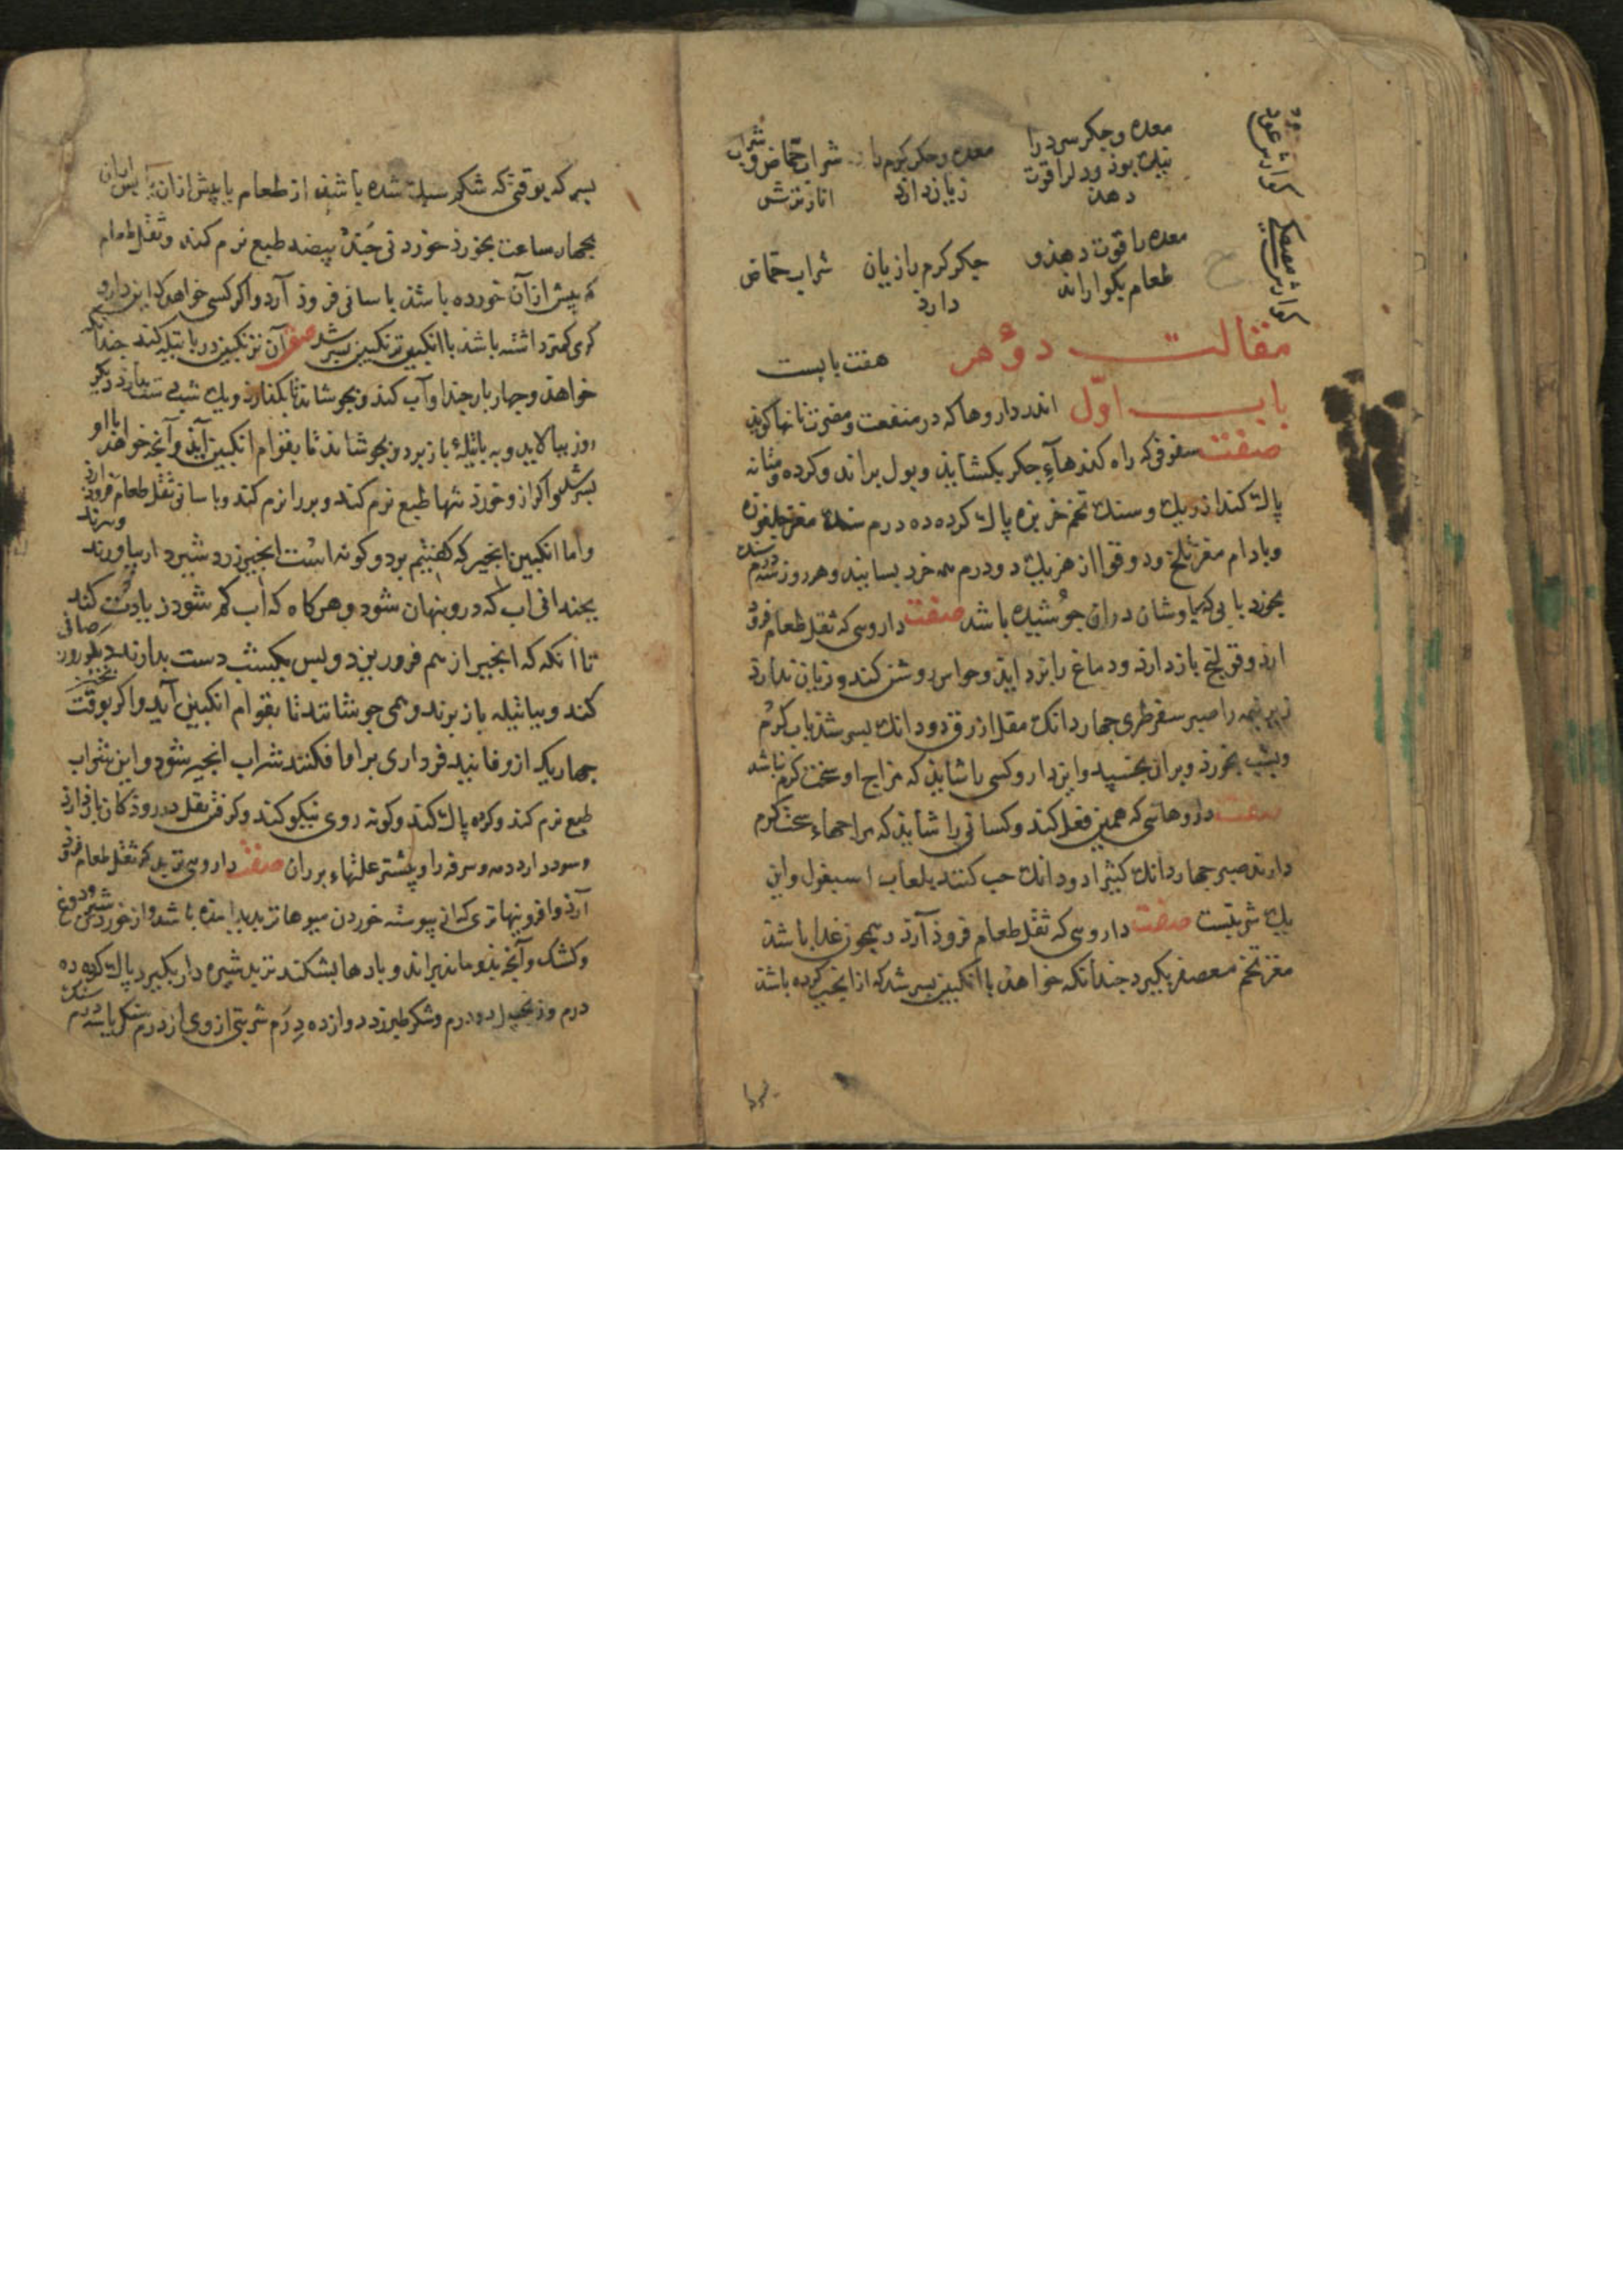 معده و جکر سرد را معده و جکر کرم را شراب حماض و شراب
نیک بوذ و دلرا قوت زیان دارد انار ترش
دهذ
کوارش عود
معده را قوت دهذ و جکر کرم را زیان شراب حماض
طعام بکواراند دارد
کوارش مصطکی
مقالت دوم هفت بابست
باب اوّل اندر داروها که در منفعت و مضرت
صفت سفوفی که راه کذرهاء جکر بکشاید و بول براند و کرده و مثانه
پاک کند از ریک و سنک تخم خربزه پاک کرده ده درم سنک مغز جلغوزه
و بادام مغز تلخ و دوقو از هر یک دو درم همه خرد بسایند و هر روز سه درم سنک
بخورد با بی که پرسیاوشان دران جوشیده باشد صفت داروی که ثقل طعام فرو
ارذ و قولنج باز دارد و دماغ را بزداید و حواس روشن کند و زیان ندارد
را صبر سقوطری جهار دانک مقل ازرق دو دانک بسرشد باب کرم
و بشب بخورد و بران بخسپد و این دارو کسی را شاید که مزاج او سخت کرم نباشد
صفت داروهایی که همین فعل کند و کسانی را شاید که مزاجهاء سخت کرم
دارند صبر جهار دانک کثیرا دو دانک حب کنند بلعاب اسبغول و این
یک شربتست صفت داروی که ثقل طعام فروذ آرد و همجون غدا باشد
مغز تخم معصفر بکیرد جندانکه خواهد با انکبین بسرشد که از انجیر کرده باشد
بس که بوقتی که شکم سبک شده باشد از طعام یا پیش ازان
بجهار ساعت بخورد خوردنی جند بیضه طبع نرم کند و ثقل طعام
که پیش ازآن خورده باشد باسانی فروذ آرد و اکر کسی خواهد که این دارو
کرمی کمتر داشته باشد با انکبین ترنکبین بسرشد صفت آن ترنکبین در باتیله کند جندانک
خواهد و جهار بار جند او آب کند و بجوشاند تا بکدازد و یک شب دست بدارد دیکر
روز بپالاید و به باتیله باز برد و بجوشاند تا بقوام انکبین آید و آنجه خواهد با او
بسرشد و اکر ازو خورد تنها طبع نرم کند و بر را نرم کند و باسانی ثقل طعام فروذ آرد
و اما انکبین انجیر که کفتیم بر دو کونه است انجیر زرد شیردار بیاورند و ببرند
بجندانی آب که درو پنهان شود و هر کاه که آب کم شود زیادت کند
تا آنکه که انجیر از هم فرو ریزد و پس یکشب دست بدارند دیکر روز صافی
کند و بباتیله باز برند و همی جوشانند تا بقوام انکبین آید و اکر بوقت
جهاریک ازو فانید بر او افکنند شراب انجیر شود و این شراب
طبع نرم کند و کرده پاک کند و کونه روی نیکو کند و کرفتن ثقل در روذکان باز دارد
و سود دارد دمه و سرفه را و بیشتر علتهاء بر را صفت داروی تربد که ثقل طعام فرو
آرذ و افزونیها تری که از پیوسته خوردن میوها تر پدید آمده باشد و از خوردن شیر و دوغ
و کشک و آنجه بذو ماند براند و بادها بشکند تربد بکیرد پاک کرده ده
درم و زنجبیل دو درم و شکر طبرزد دوازده درم شربتی از وی از درم سنک تا سه درم سنک